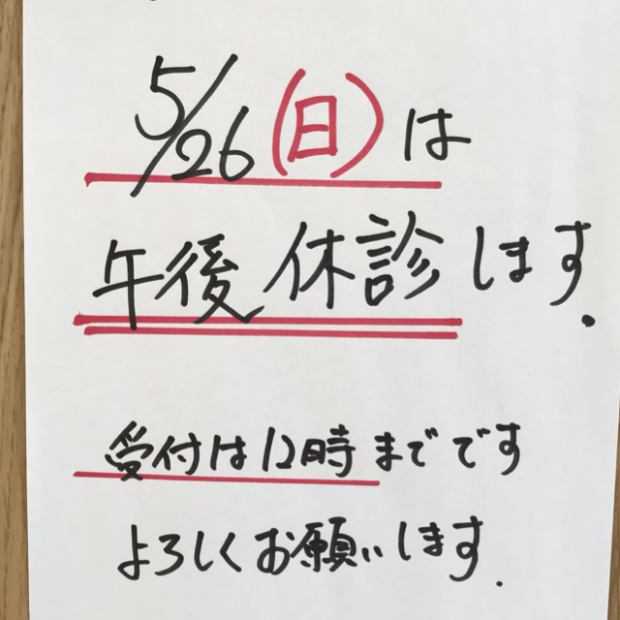 5/26(日)は
午後休診します.
受付は12時までです
よろしくお願いします.